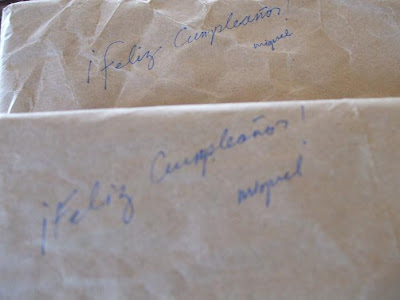 ¡Feliz Cumpleaños!
miguel
¡Feliz Cumpleaños!
miguel